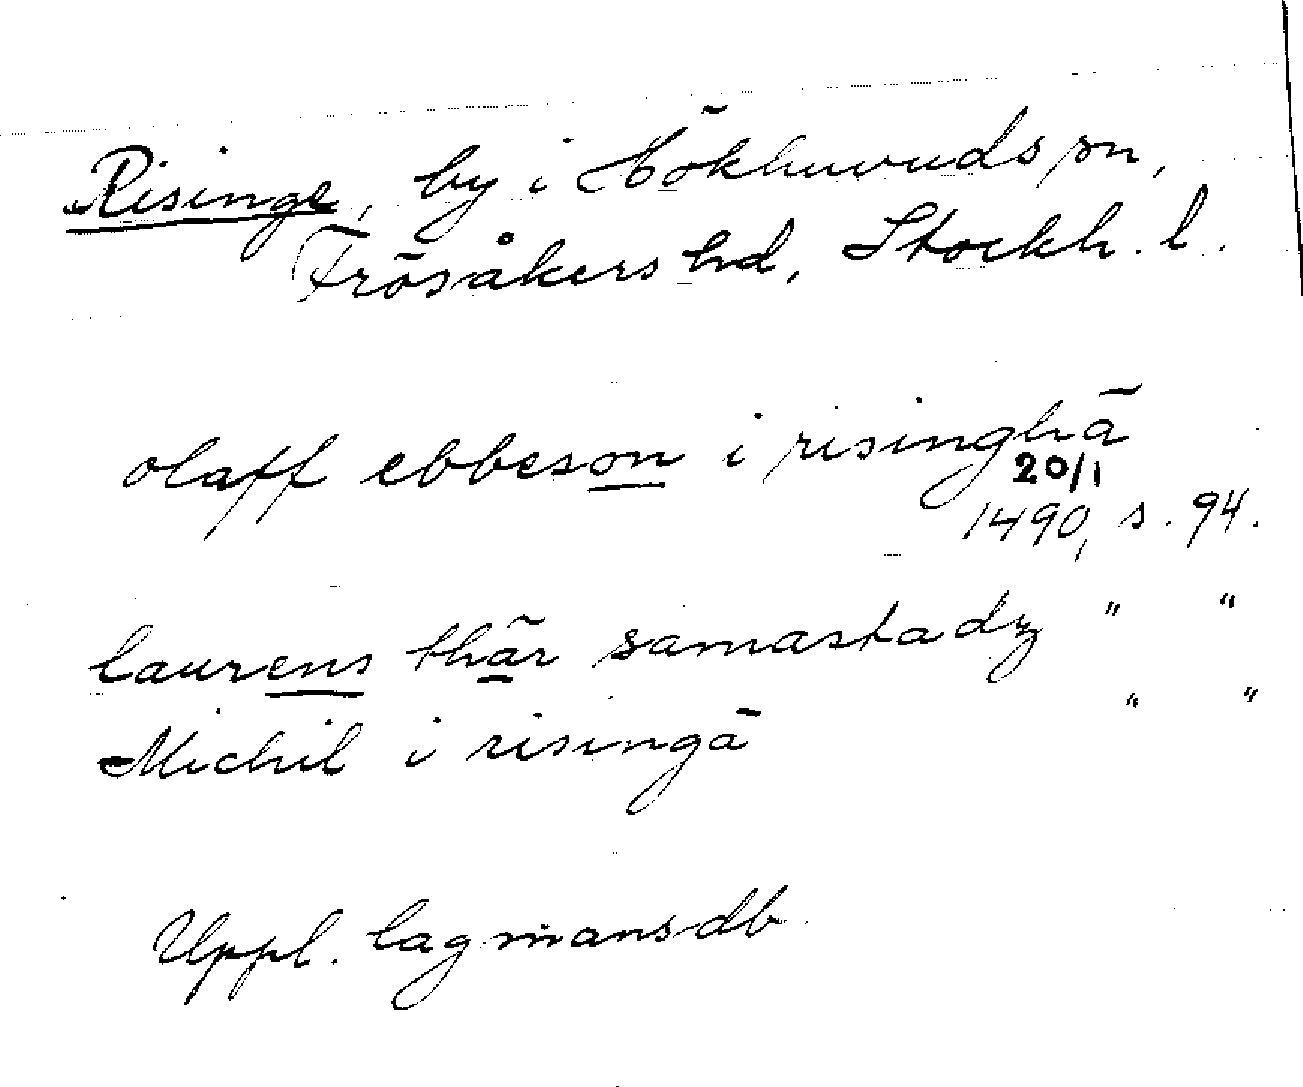 Risinge, by i Hökhuvuds sn,
Frösåkers hd, Stockh. l.
olaff ebbeson i risinghä
20/1
1490, s. 94.
laurens thär samastadz " "
Michil i risingä " "
Uppl. lagmansdb.